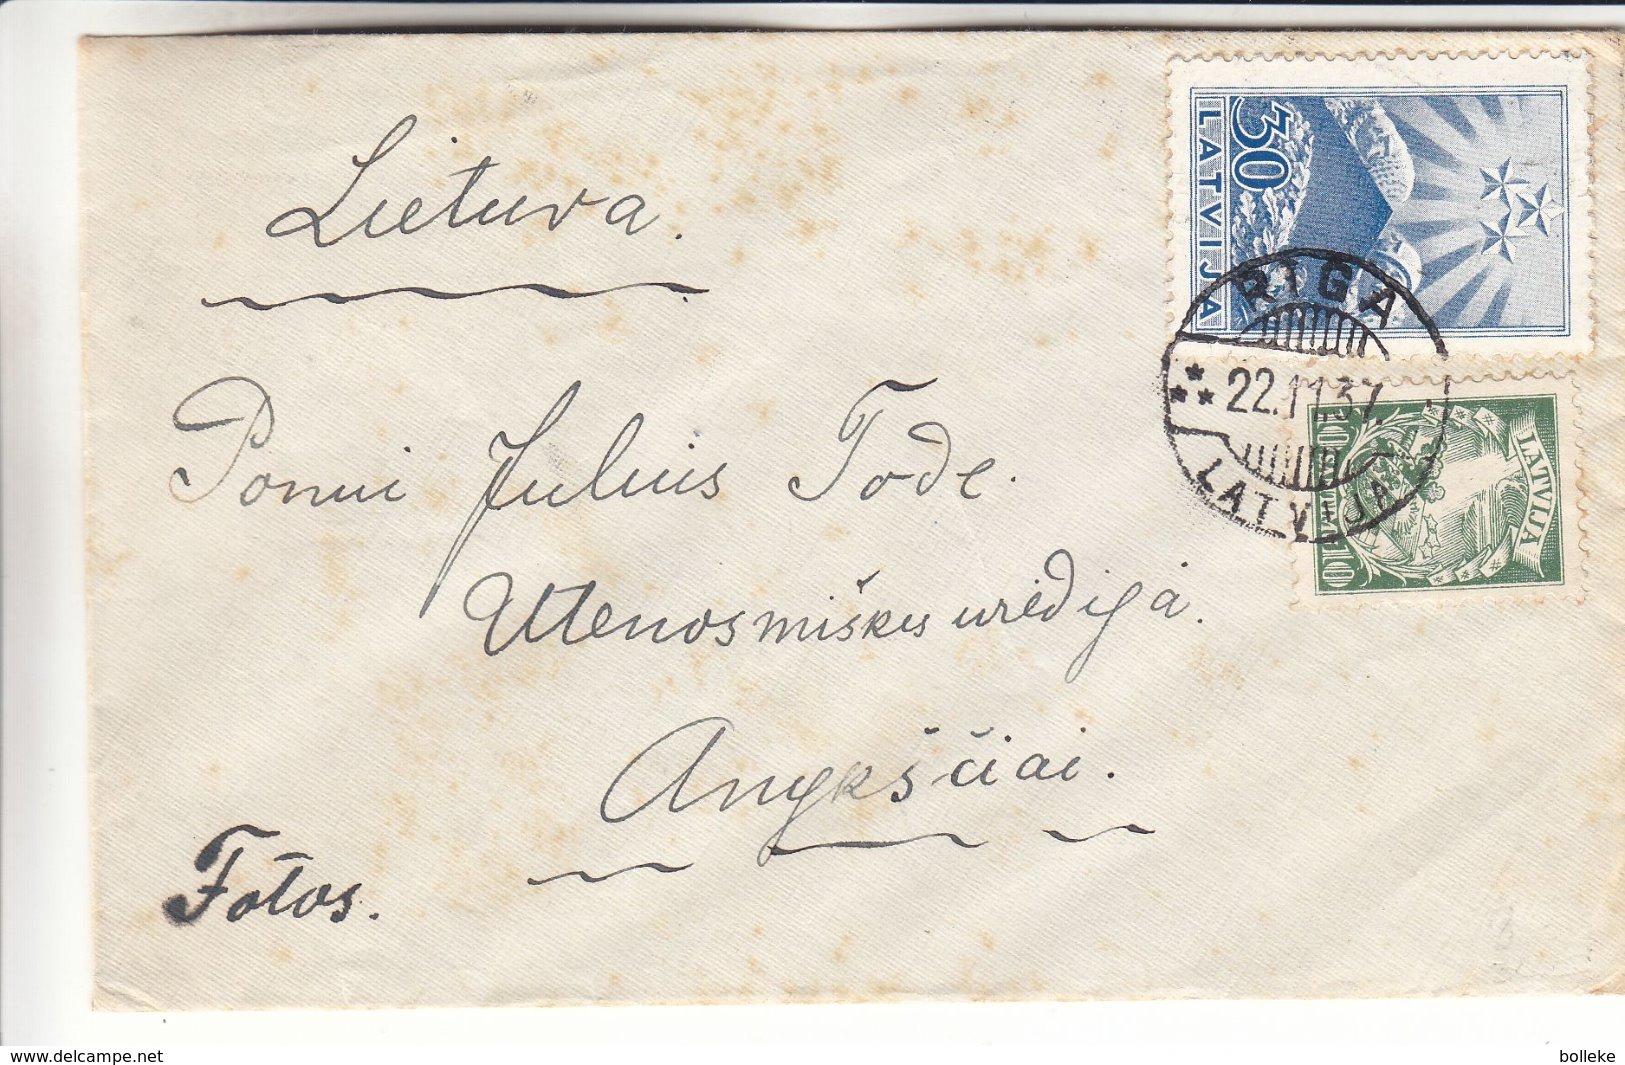 Lietuva.
Ponui Julius Tode.
Utenos miškų urėdija.
Anykščiai.
Fotos.
30
LATVIJA
RIGA
22.11.37.
LATVIJA
LATVIJA
10
10
www.delcampe.net
bolleke